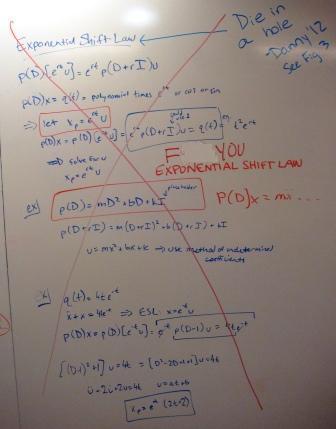 Exponential Shift Law
Die in
a hole
Danny '12
see Fig 3
p(D)[e^rt u] = e^rt p(D+rI)u
p(D)x = q(t) = polynomial times e^rt or cos or sin
⇒ let x_p = e^rt u
p(D)x = p(D)[e^rt u] = e^rt p(D+rI)u = q(t)
⇒ solve for u
x_p = e^rt u
F YOU
EXPONENTIAL SHIFT LAW
ex) p(D) = mD²+bD+kI placeholder
P(D)x = m...
p(D+rI) = m(D+rI)²+b(D+rI)+kI
⇒ use method of undetermined
coefficients
ex) q(t) = 4te^-t
ẍ+x = 4te^-t ⇒ ESL: x=e^-t u
p(D)x = p(D)[e^-t u] = e^-t p(D-1)u = 4te^-t
[(D-1)²+1]u = 4t = [D²-2D+1+1]u = 4t
ü-2u̇+2u = 4t u = at+b
x_p = e^-t (2t+2)